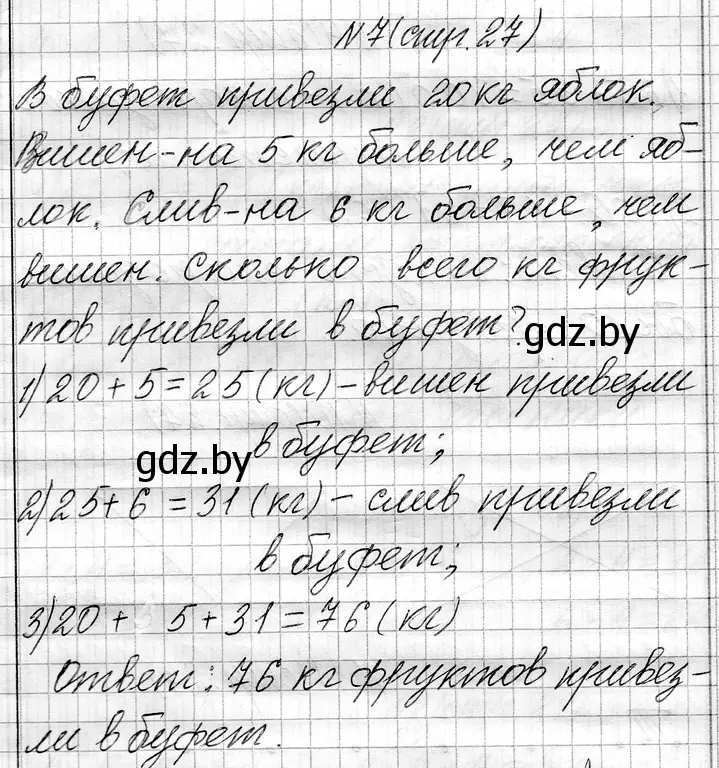 N7(стр.27)
В буфет привезли 20 кг яблок.
Вишен-на 5 кг больше, чем яб-
лок. Слив-на 6 кг больше, чем
вишен. Сколько всего кг фрук-
тов привезли в буфет?
gdz.by
1) 20 + 5 = 25 (кг) – вишен привезли
в буфет;
gdz.by
2) 25 + 6 = 31 (кг) – слив привезли
в буфет;
3) 20 + 5 + 31 = 76 (кг)
Ответ: 76 кг фруктов привез-
ли в буфет.